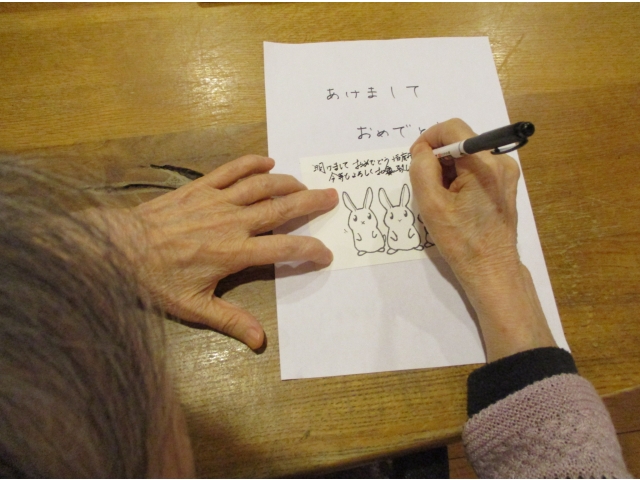 あけまして
おめでと
明けまして おめでとう
今年もよろしくお